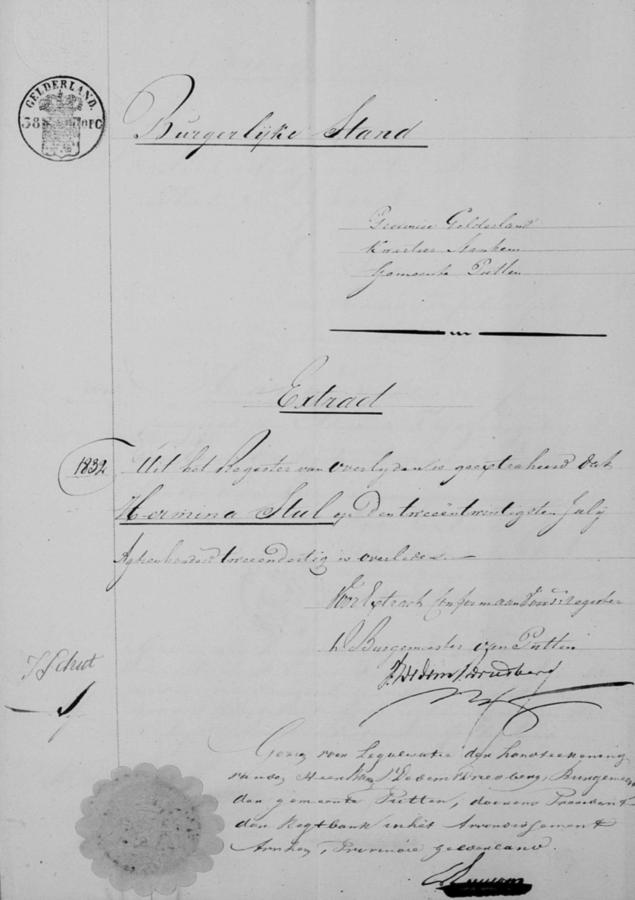 GELDERLAND.
38
Burgerlijke Stand
Provincie Gelderland
Kwartier Arnhem
Gemeente Putten
Extract
1832
Uit het Register van overlyden is geextraheerd dat
Hermina Stul op den tweeëntwintigsten July
Agtienhonderd tweeendertig is overleden.
Voor Extract Conform aan voors: register
De Burgemeester van Putten
J Schut
Gezien voor Legalisatie der handteekening
van den Heer, Burgemees
der gemeente Putten, door ons President
der Regtbank in het Arrondissement
Arnhem, Provincie Gelderland.